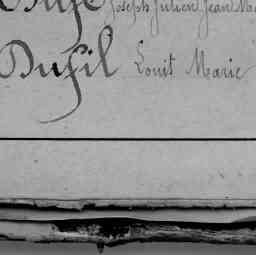 Joseph Julien Jean Ma
Dufil Louis Marie